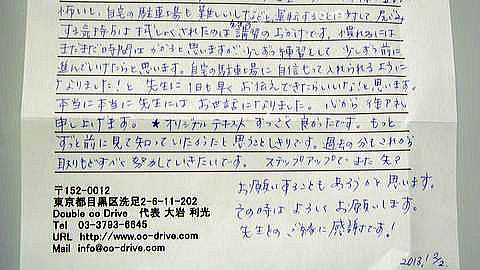 怖いし、自宅の駐車場も難しいしなどと、運転することに対して尻込み
する気持ちは払しょくされたのは講習のおかげです。慣れるには
まだまだ時間はかかると思いますが、少しずつ練習をして、少しずつ前に
進んでいけたらと思います。自宅の駐車場に自信もって入れられるように
なりました!と先生に1日も早くお伝えできたらいいな!と思います。
本当に本当に先生にはお世話になりました。心から御礼
申し上げます。★オリジナルテキストすっごく良かったです。もっと
ずっと前に見て知っていたかったと思うことしきりです。過去の分もこれから
取りもどすべく努力していきたいです。ステップアップでまた先生
お願いすることもあろうかと思います。
その時はよろしくお願いします。
先生とのご縁に感謝です!
2013.
〒152-0012
東京都目黒区洗足2-6-11-202
Double oo Drive 代表 大岩 利光
Tel 03-3793-6645
URL http://www.oo-drive.com
Mail info@oo-drive.com